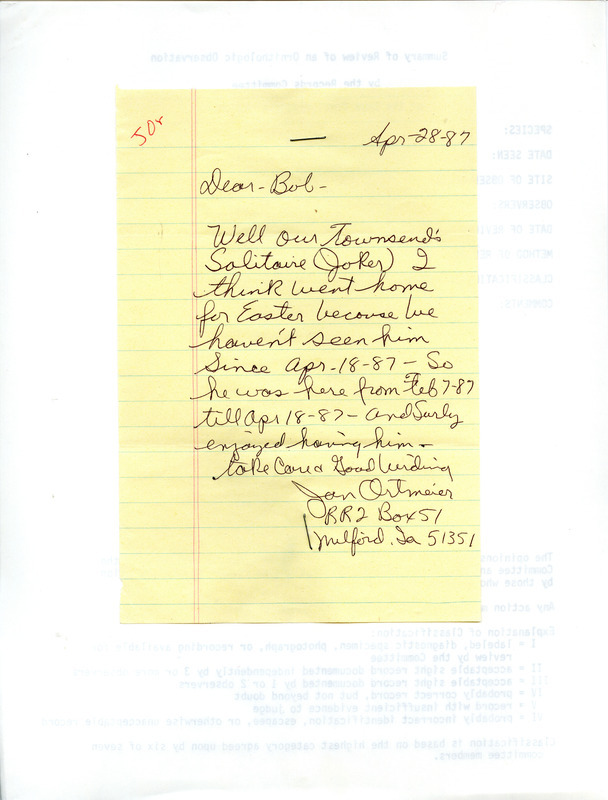 50r
Apr-28-87
Dear-Bob-
Well our Townsend's
Solitaire (Joker) I
think went home
for Easter because we
haven't seen him
Since Apr-18-87- So
he was here from Feb 7-87
till Apr 18-87- and Surly
enjoyed having him-
take Care & Good birding
Jan Ortmeier
RR2 Box 51
Milford, Ia 51351
Summary of Review of an Ornithologic Observation
by the Records Committee
SPECIES:
DATE SEEN:
SITE OF
OBSERVERS:
DATE OF
METHOD OF
COMMENTS:
The opinions
Committee
by those who
Any action
Explanation of Classification:
I = labeled, diagnostic specimen, photograph, or recording available for
review by the Committee
II = acceptable sight record documented independently by 3 or more observers
III = acceptable sight record documented by 1 or 2 observers
IV = probably correct record, but not beyond doubt
V = record with insufficient evidence to judge
VI = probably incorrect identification, escapes, or otherwise unacceptable record
Classification is based on the highest category agreed upon by six of seven
committee members.